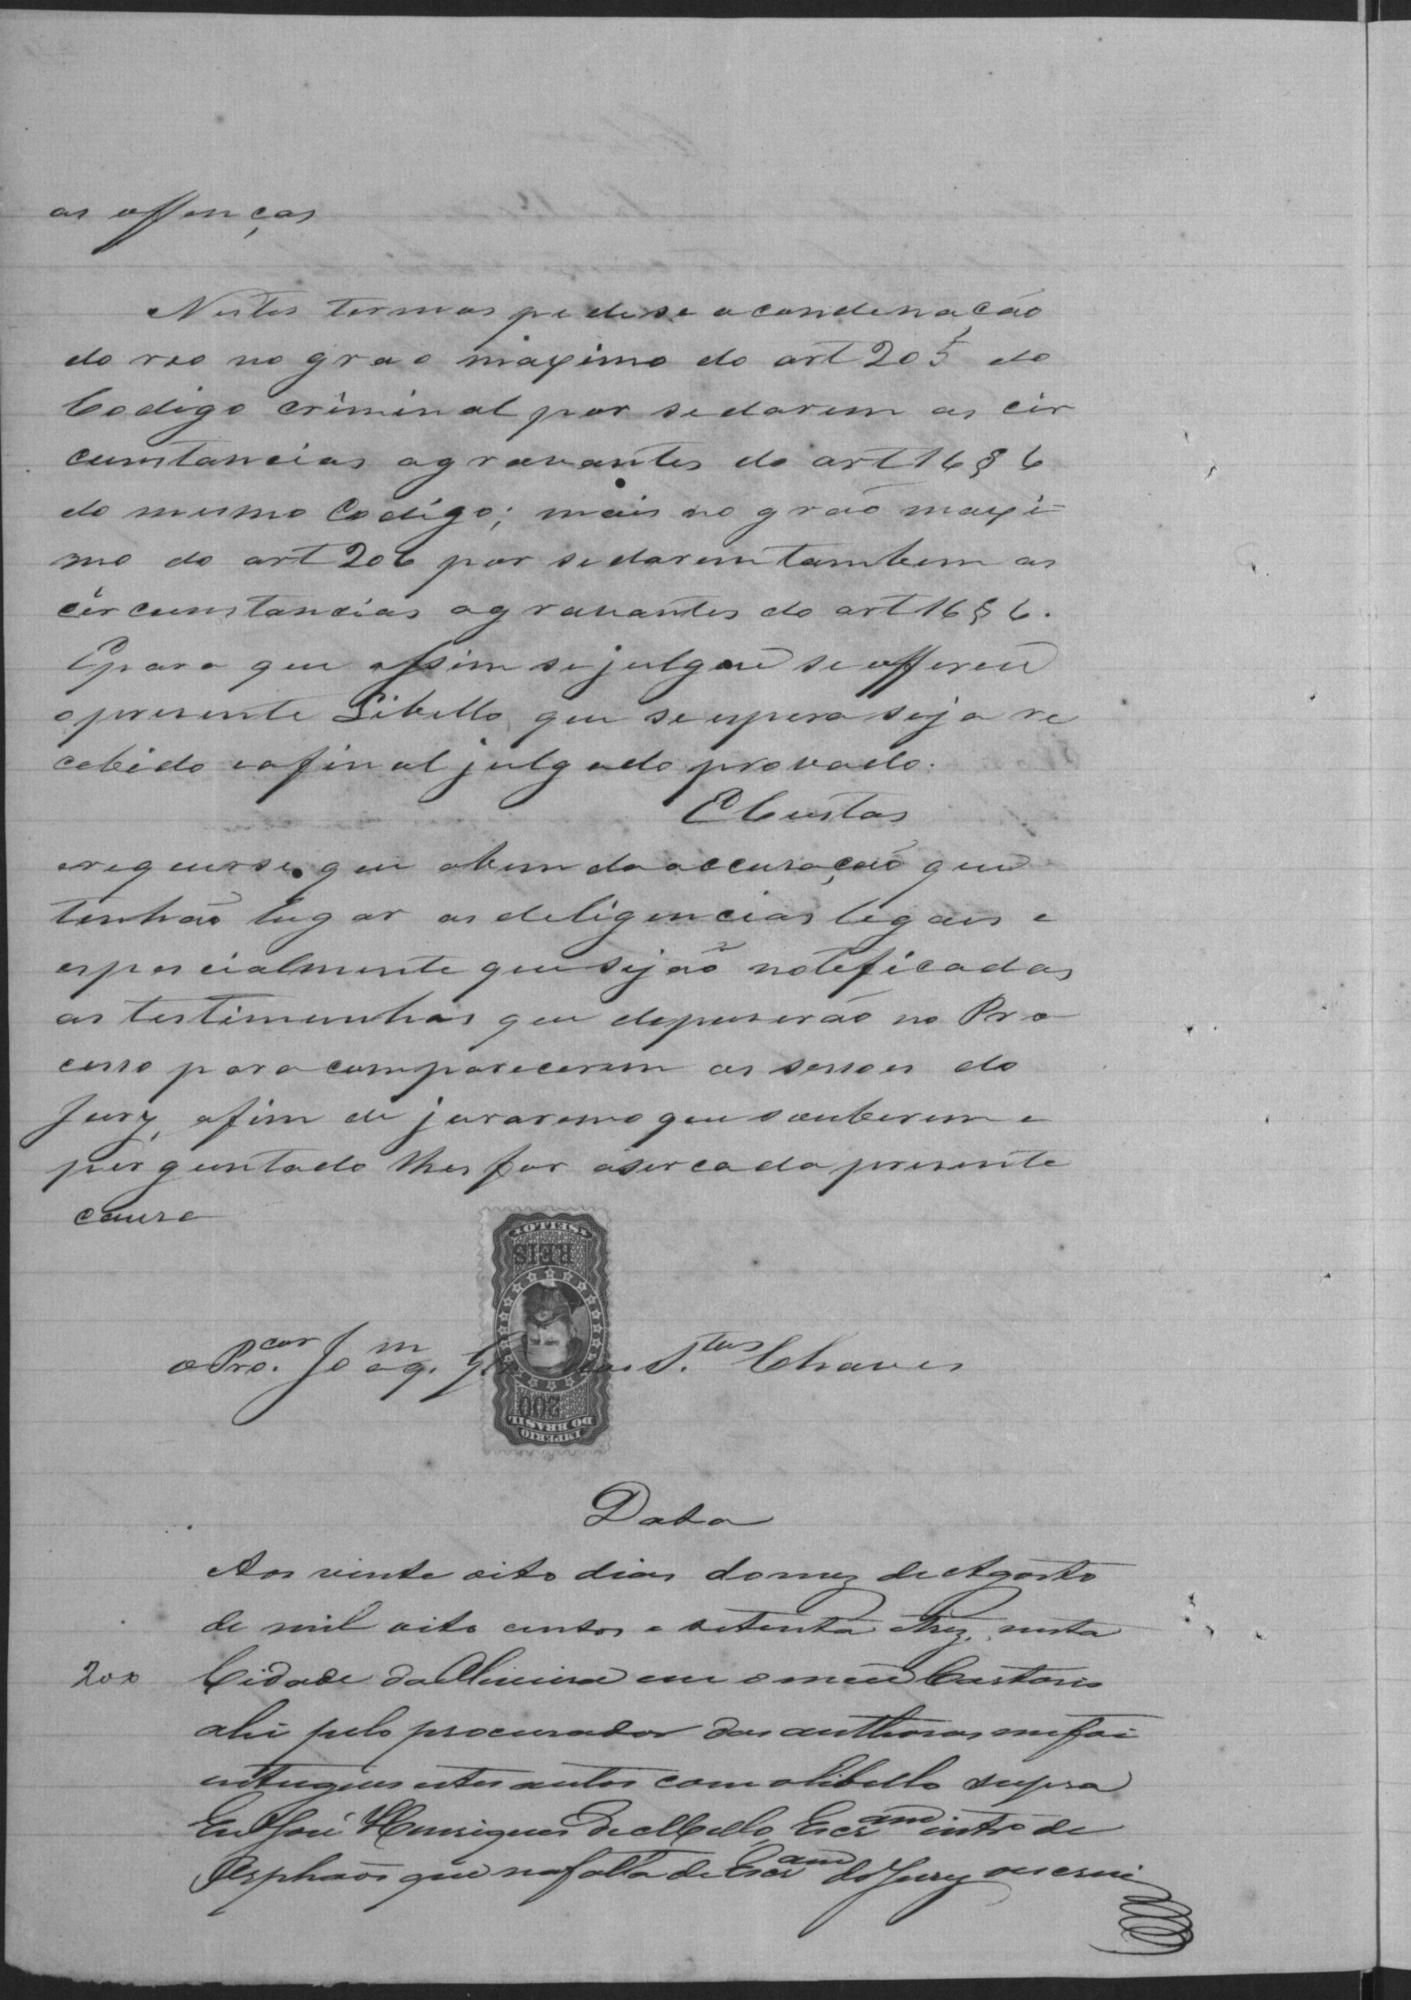 as offenças
Nestes termos pede se a condenação
do reo no grao maximo do art 205 do
Codigo criminal por se darem as cir
cumstancias agravantes do art 16 § 6
do mesmo Codigo; mais no grão maxi-
mo do art 206 por se darem tambem as
circumstancias agravantes do art 16 § 6.
E para que assim se julgue se offerece
o presente Libello que se espera seja re
cebido e afinal julgado provado.
E Custas
e requerse que a bem da accusação que
tenhão lugar as deligencias legais e
espescialmente que sejão noteficadas
as testimunhas que depuserão no Pro
cesso para comparecerem as sessoes do
Jury, afim de jurarem o que souberem e
perguntado lhes for asercada presente
causa
SELLO
REIS
200
IMPERIO DO BRASIL
o Pro.cor Joaq.m S.tos Chaves
Data
Aos vinte oito dias do mez de Agosto
de mil oito centos e setenta e trez, nesta
200 Cidade da Oliveira em o meu Cartorio
ahi pelo procurador dos authoras me foi
entregues estes autos com o libello supra
Eu José Henriques de Mello, Escr.am intro de
Orphãos que na falta de Escr.am do Jury o escrevi